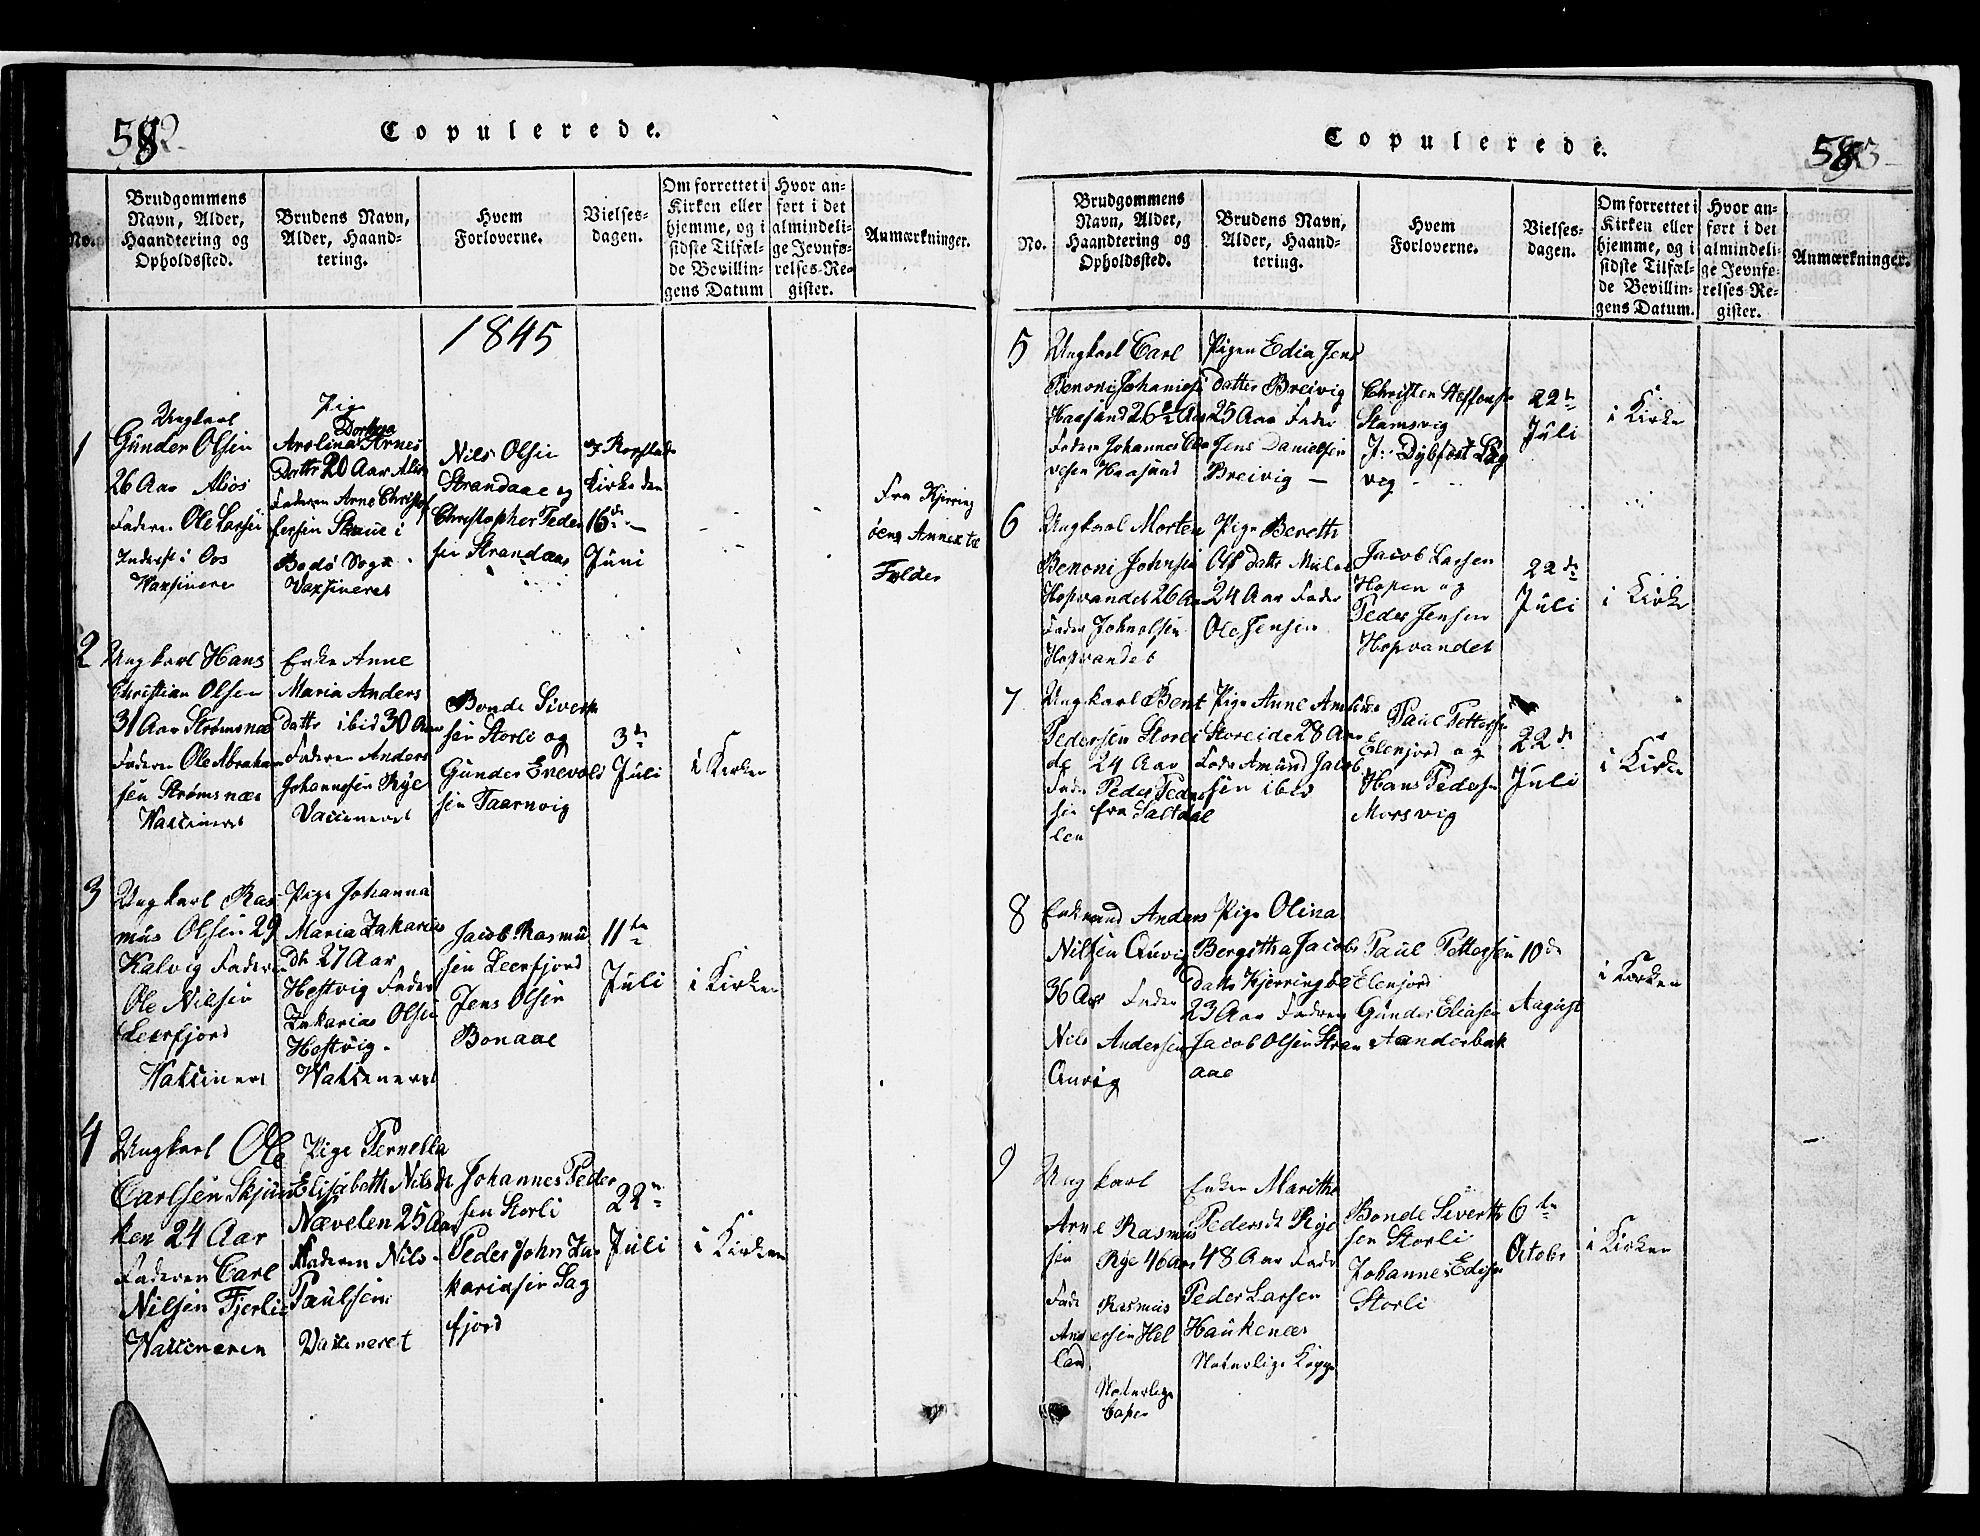 Copulerede.
No.
Brudgommens
Navn, Alder,
Haandtering og
Opholdssted.
Brudens Navn,
Alder, Haand-
tering.
Hvem
Forloverne.
Vielses-
dagen.
Om forrettet i
Kirken eller
hjemme, og i
sidste Tilfæl-
de Bevillin-
gens Datum
Hvor an-
ført i det
almindeli-
ge Jevnfø-
relses-Re-
gister.
Anmærkninger.
1845
1
Ungkarl
Gunder Olsen
26 Aar Alsos
Faderen Ole Larsen
Inderst i Oos
Vaxsinere
Pige
Dorthea
Arolina Arnes
Datter 20 Aar Alsos
Faderen Arne Christof
fersen Skaue i
Bodø Sogn
Vaxsineret
Nils Olsen
Strandaae og
Christopher Peder
sen Strandaae
Kirke den
16de
Juni
Fra Kjerring
øens Annex til
Folden
2
Ungkarl Hans
Christian Olsen
31 Aar Strømsnæs
Faderen Ole Abraham
sen Strømsnæs
Vaccineret
Enke Anne
Maria Anders
datter ibid 30 Aar
Faderen Anders
Johannesen Rye
Vaccineret
Bonde Sivert
sen Storli og
Gunder Enevold
sen Taarnvig
3de
Juli
i Kirken
3
Ungkarl Ras
mus Olsen 29
Kalvig Faderen
Ole Nilsen
Leerfjord
Vaccineret
Pige Johanna
Maria Zakarias
Dtr 27 Aar
Hestvig Fader
Zakarias Olsen
Hestvig
Vaccineret
Jacob Rasmu
sen Leerfjord
Jens Olsen
Bonaae
11te
Juli
i Kirken
4
Ungkarl Ole
Carlsen Skjun
ken 24 Aar
Faderen Carl
Nilsen Fjerlie
Vaccineren
Pige Pernella
Elisabeth Nilsdr
Nævelen 25 Aar
Faderen Nils
Paulsen
Vaccineret
Johannes Peder
sen Storli
Peder John Za
kariasen Lag
fjord
22
Juli
i Kirken
Copulerede.
No.
Brudgommens
Navn, Alder,
Haandtering og
Opholdssted.
Brudens Navn,
Alder, Haand-
tering.
Hvem
Forloverne.
Vielses-
dagen.
Om forrettet i
Kirken eller
hjemme, og i
sidste Tilfæl-
de Bevillin-
gens Datum.
Hvor an-
ført i det
almindeli-
ge Jevnfø-
relses-Re-
gister.
Anmærkninger.
5
Ungkarl Carl
Benoni Johannes
Haasund 26½ Aar
Faderen Johannes
Haasund
Pigen Edia Jens
datter Breivig
25 Aar Fader
Jens Danielsen
Breivig
Christen Steffens
Stamsvig
J: Dybfest Lag
vig
22de
Juli
i Kirke
6
Ungkarl Morten
Benoni Johnsen
Hopvandet 26 Aar
Fader John Olsen
Hopvandet
Pige Bereth
Ols datter
24 Aar Fader
Ole Jensen
Jacob Larsen
Hopen og
Peder Jensen
Hopvandet
22de
Juli
i Kirke
7
Ungkarl Bent
Pedersen Storei
de 24 Aar
Fader Peder Peder
sen fra Saltda
len
Pige Anne Amunds
Storeide 28 Aar
Fader Amund Jacob
sen ibid
Paul Pettersen
Elenjord og
Hans Pedersen
Morsvig
22de
Juli
i Kirke
8
Enkemand Anders
Nilsen Auvig
36 Aar Fader
Nils Andersen
Auvig
Pige Olina
Bergitha Jacobs
datter Kjerringøe
23 Aar Faderen
Jacob Olsen Stran
aae
Paul Pettersen
Elenjord
Gunder Eliasen
Aanderbak
10de
August
i Kirken
9
Ungkarl
Arne Rasmus
sen Rye 46 Aar
Fader Rasmus
Andersen Hel
land
Naturlige
Enken Maritha
Pedersdr Rye
48 Aar Fader
Peder Larsen
Haukenæs
Naturlige Kopper
Bonde Siverth
sen Storli
Johannes
Storli
6te
October
i Kirken